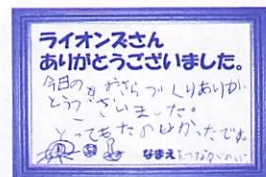 ライオンズさん
ありがとうございました。
今日の おさらづくりありが
とうございました。
とってもたのしかったです。
なまえ